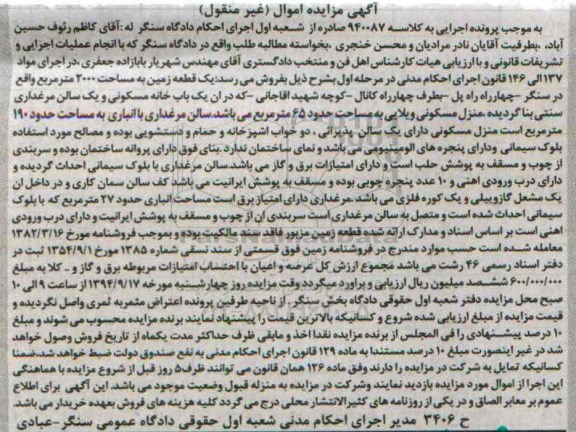 آگهی مزایده اموال (غیر منقول)
به موجب پرونده اجرایی به کلاسه ۹۴۰۰۸۷ صادره از شعبه اول اجرای احکام دادگاه سنگر له :آقای کاظم رئوف حسین
آباد، بطرفیت آقایان نادر مرادیان و محسن خنجری ،بخواسته مطالبه طلب واقع در دادگاه سنگر که با انجام عملیات اجرایی و
تشریفات قانونی و با ارزیابی هیات کارشناس اهل فن و منتخب دادگستری آقای مهندس شهریار بابازاده جعفری ،در اجرای مواد
۱۳۷ الی ۱۴۶ قانون اجرای احکام مدنی در مرحله اول بشرح ذیل بفروش می رسد:یک قطعه زمین به مساحت ۲۰۰۰ مترمربع واقع
در سنگر -چهارراه راه پل -بطرف چهارراه کانال -کوچه شهید اقاجانی -که در ان یک باب خانه مسکونی و یک سالن مرغداری
سنتی بنا گردیده ،منزل مسکونی ویلایی به مساحت حدود ۶۵ مترمربع می باشد.سالن مرغداری با انباری به مساحت حدود ۱۹۰
مترمربع است منزل مسکونی دارای یک سالن پذیرائی ، دو خواب اشپزخانه و حمام و دستشویی بوده و مصالح مورد استفاده
بلوک سیمانی و دارای پنجره های الومینیومی می باشد و نمای ساختمان ندارد .بنای فوق دارای پروانه ساختمان بوده و سربندی
از چوب و مسقف به پوشش حلب است و دارای امتیازات برق و گاز می باشد.سالن مرغداری با بلوک سیمانی احداث گردیده و
دارای درب ورودی اهنی و ۱۰ عدد پنجره چوبی بوده و مسقف به پوشش ایرانیت می باشد کف سالن سمان کاری و در داخل ان
یک مشعل گازوییلی و یک کوره فلزی می باشد .مرغداری دارای امتیاز برق است مساحت انباری حدود ۲۷ مترمربع که با بلوک
سیمانی احداث شده است و متصل به سالن مرغداری است سربندی ان از چوب و مسقف به پوشش ایرانیت و دارای درب ورودی
اهنی است بر اساس اسناد و مدارک ارائه شده قطعه زمین مزبور فاقد سند مالکیت بوده و بموجب فروشنامه مورخ ۱۳۸۲/۳/۱۶
معامله شده است حسب موارد مندرج در فروشنامه زمین فوق قسمتی از سند نسقی شماره ۱۳۸۵ مورخ ۱۳۵۴/۹/۱ ثبت در
دفتر اسناد رسمی ۴۶ رشت می باشد مجموع ارزش کل عرصه و اعیان با احتساب امتیازات مربوطه برق و گاز و - کلا به مبلغ
۶۰۰/۰۰۰/۰۰۰ ششصد میلیون ریال ارزیابی و براورد میگردد وقت مزایده روز چهارشنبه مورخه ۱۳۹۴/۹/۱۷ از ساعت ۹ الی ۱۰
صبح محل مزایده دفتر شعبه اول حقوقی دادگاه بخش سنگر . از ناحیه طرفین پرونده اعتراض مثمریه ثمری واصل نگردیده و
قیمت مزایده از مبلغ ارزیابی شده شروع و کسانیکه بالاترین قیمت را پیشنهاد نمایند برنده مزایده محسوب می شوند و مبلغ
۱۰ درصد پیشنهادی را فی المجلس از برنده مزایده نقدا اخذ و مابقی ظرف حداکثر مدت یکماه از تاریخ فروش وصول خواهد
شد در غیر اینصورت مبلغ ۱۰ درصد مستندا به ماده ۱۲۹ قانون اجرای احکام مدنی به نفع صندوق دولت ضبط خواهد شد،ضمنا
کسانیکه تمایل به شرکت در مزایده را دارند وفق ماده ۱۲۶ همان قانون می توانند ظرف۵ روز قبل از شروع مزایده با هماهنگی
این اجرا از اموال مورد مزایده بازدید نمایند وشرکت در مزایده به منزله قبول وضعیت موجود می باشد. این آگهی برای اطلاع
عموم بر معابر الصاق و در یکی از روزنامه های کثیرالانتشار محلی درج می گردد کلیه هزینه های فروش بعهده خریدار می باشد.
ح ۳۴۰۶ مدیر اجرای احکام مدنی شعبه اول حقوقی دادگاه عمومی سنگر-عبادی